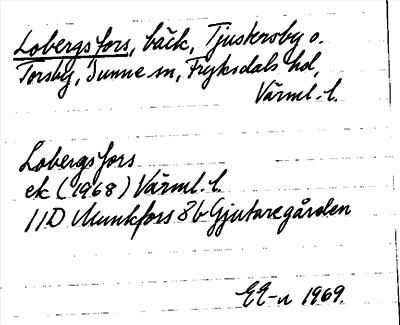 Lobergsfors, bäck, Tjuskersby o.
Torsby, Sunne sn, Fryksdals hd,
Värml. l.
Lobergsfors
ek (1968) Värml. l.
11D Munkfors 8b Gjutaregården
EE-n 1969.